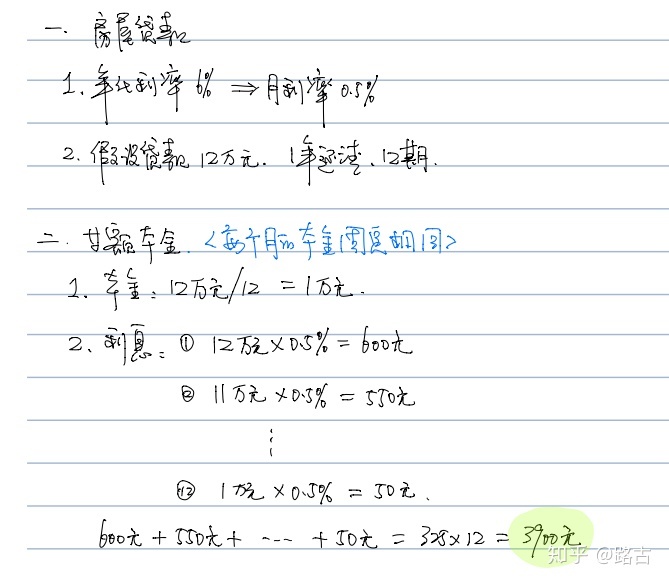 一. 房屋贷款
1. 年化利率 6% ⇒ 月利率 0.5%
2. 假设贷款 12万元. 1年还清. 12期.
二. 等额本金. <每个月的本金偿还相同>
1. 本金: 12万元/12 = 1万元.
2. 利息: ① 12万元×0.5% = 600元
② 11万元×0.5% = 550元
⋮
⑫ 1万元×0.5% = 50元.
600元 + 550元 + ---- + 50元 = 325×12 = 3900元
知乎 @路古